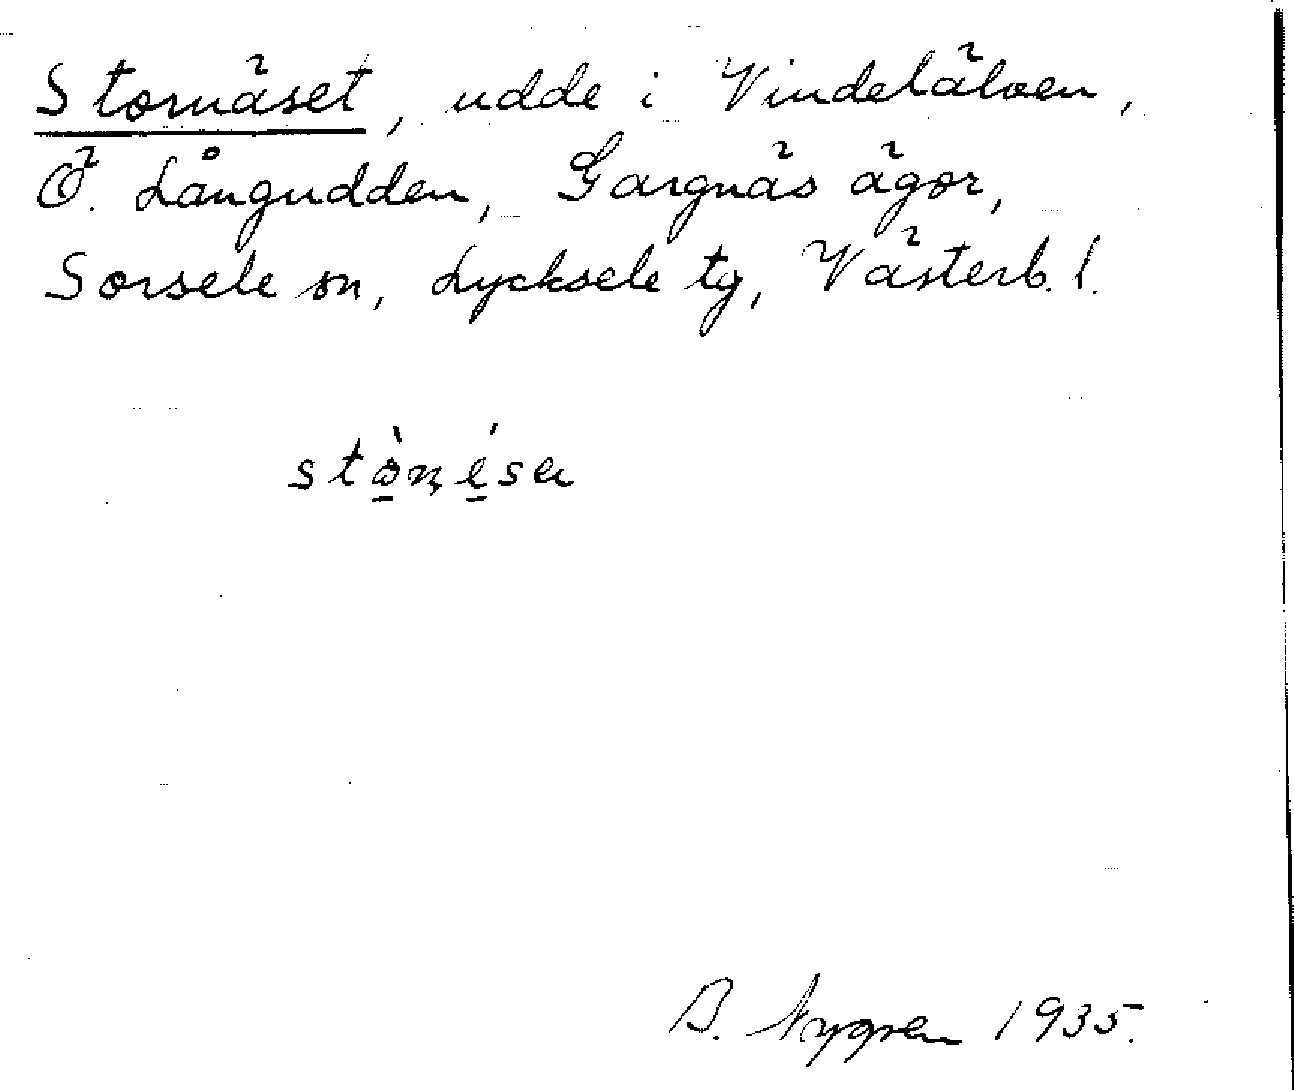 Stornäset, udde i Vindelälven,
Ö. Långudden, Gargnäs ägor,
Sorsele sn, Lycksele tg, Västerb. l.
B. Nygren 1935.